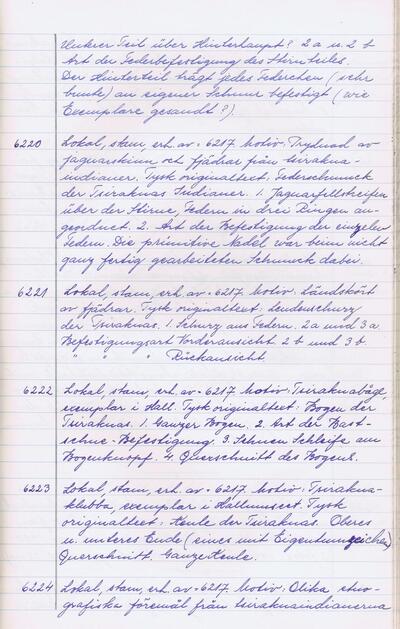 Unterer Teil über Hinterhaupt? 2a u. 2 b
Art der Federbefestigung des Stirnteiles.
Der Hinterteil trägt jedes Federchen (sehr
bunte) an eigener Schnur befestigt (wie
Exemplare gesandt?).
6220 Lokal, stam, erh. av = 6217 Motiv: Prydnad av
jaguarskinn och fjädrar från tsirakua-
indianer. Tysk originaltext: Federschmuck
der Tsirakuas Indianer. 1. Jaguarfellstreifen
über der Stirne, Federn in drei Ringen an-
geordnet. 2. Art der Befestigung der einzelnen
Federn. Die primitive Nadel war beim nicht
ganz fertig gearbeiteten Schmuck dabei.
6221 Lokal, stam, erh. av = 6217 Motiv: Ländskört
av fjädrar. Tysk originaltext: Lendenschurz
der Tsirakuas. 1. Schurz aus Federn. 2a und 3a
Befestigungsart Vorderansicht 2 b und 3 b.
" " " Rückansicht
6222 Lokal, stam, erh. av = 6217 Motiv: Tsirakuabåge,
exemplar i Hall. Tysk originaltext: Bogen der
Tsirakuas. 1. Ganzer Bogen. 2. Art der Bast-
schnur-Befestigung. 3. Sehnen Schleife am
Bogenknopf. 4. Querschnitt des Bogens.
6223 Lokal, stam, erh. av = 6217 Motiv: Tsirakua-
klubba, exemplar i Hallmuseet. Tysk
originaltext: Keule der Tsirakuas. Oberes
u. unteres Ende (eines mit Eigentumzeichen)
Querschnitt. Ganze Keule.
6224 Lokal, stam, erh. av = 6217 Motiv: Olika etno-
grafiska föremål från tsirakuaindianerna